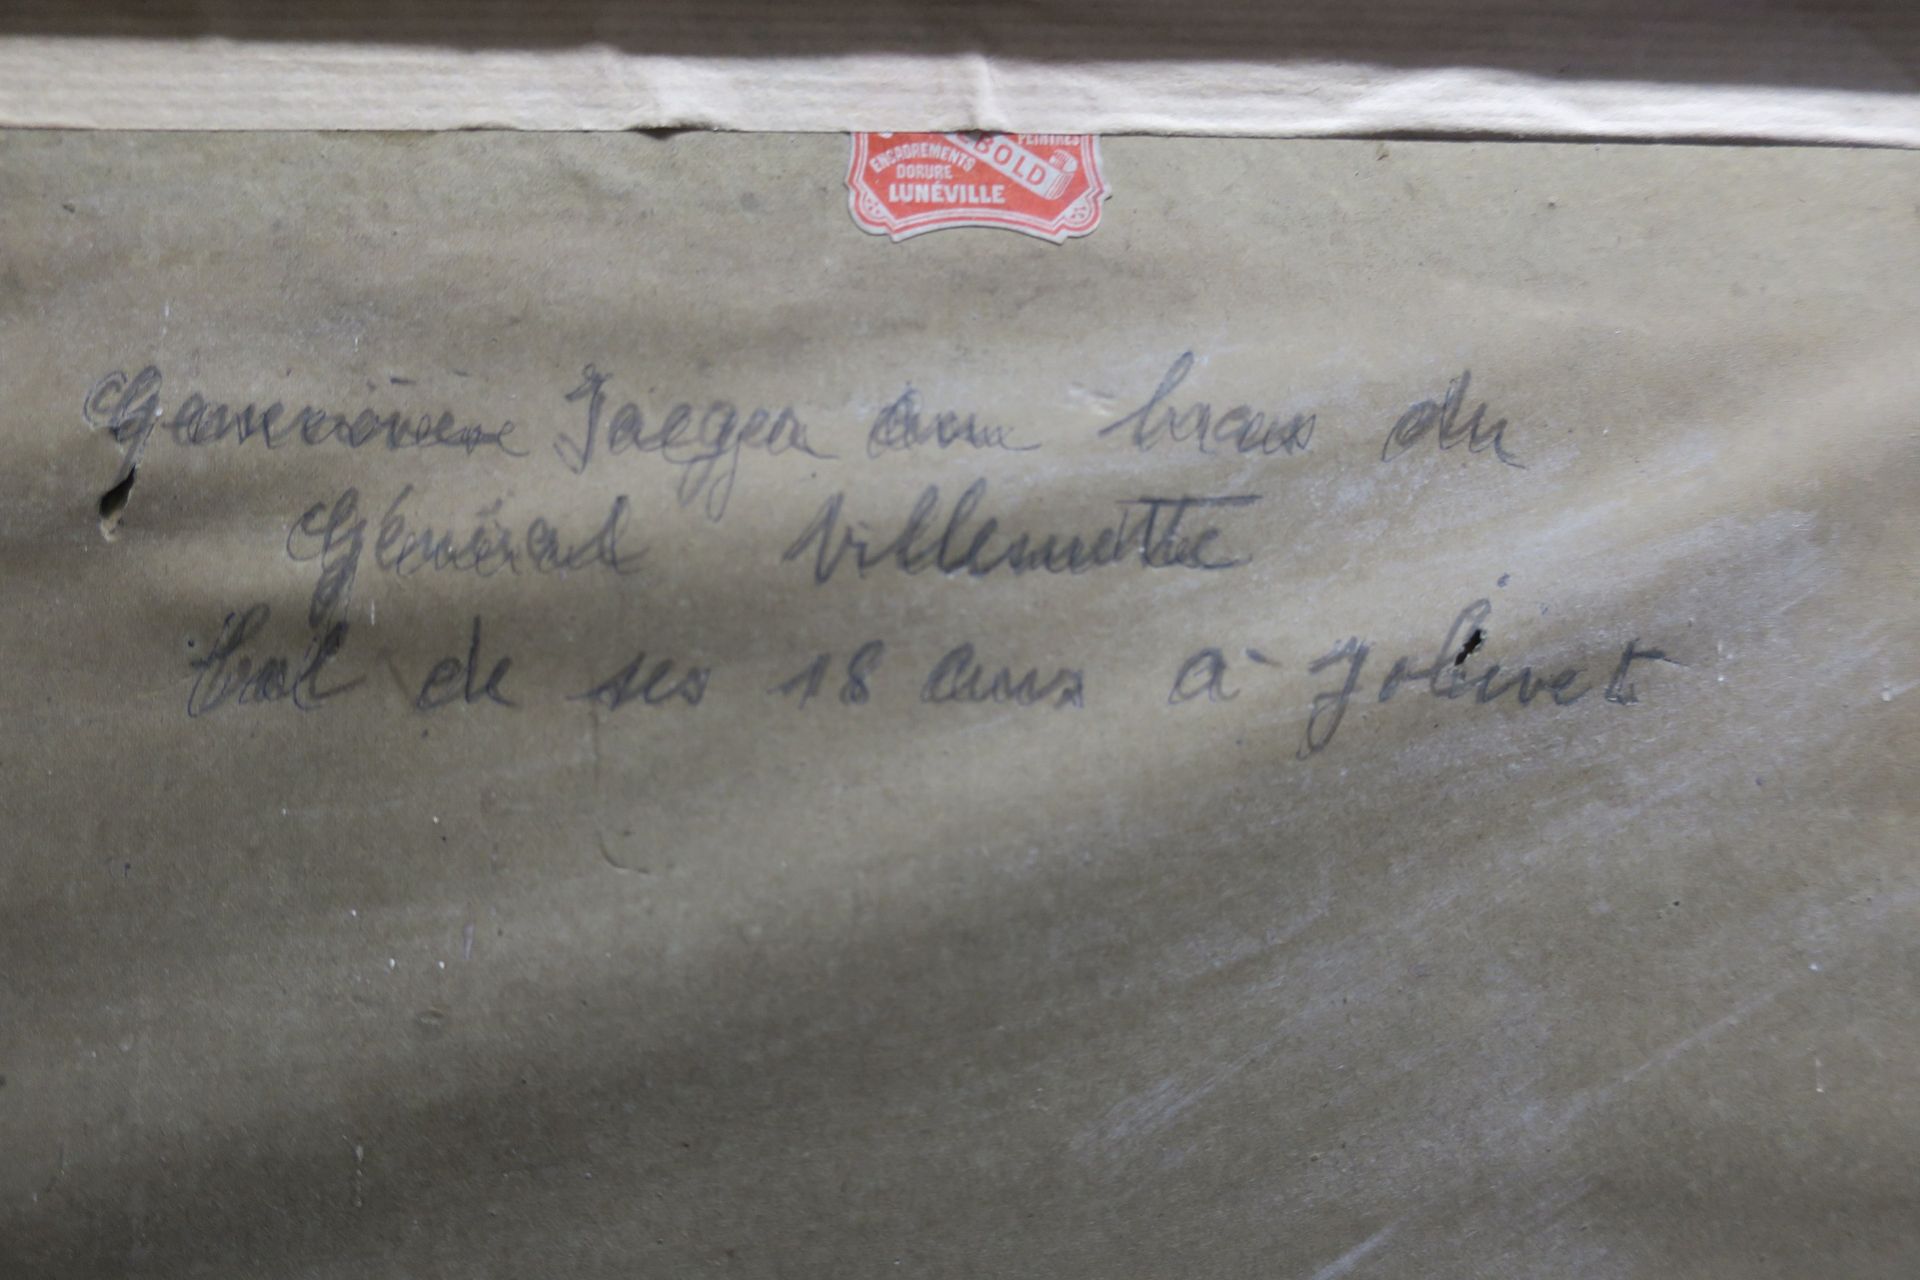 BOLD
PEINTRES
ENCADREMENTS
DORURE
LUNÉVILLE
Geneviève Jaeger au bras du
Général Villemette
bal de ses 18 ans à Jolivet